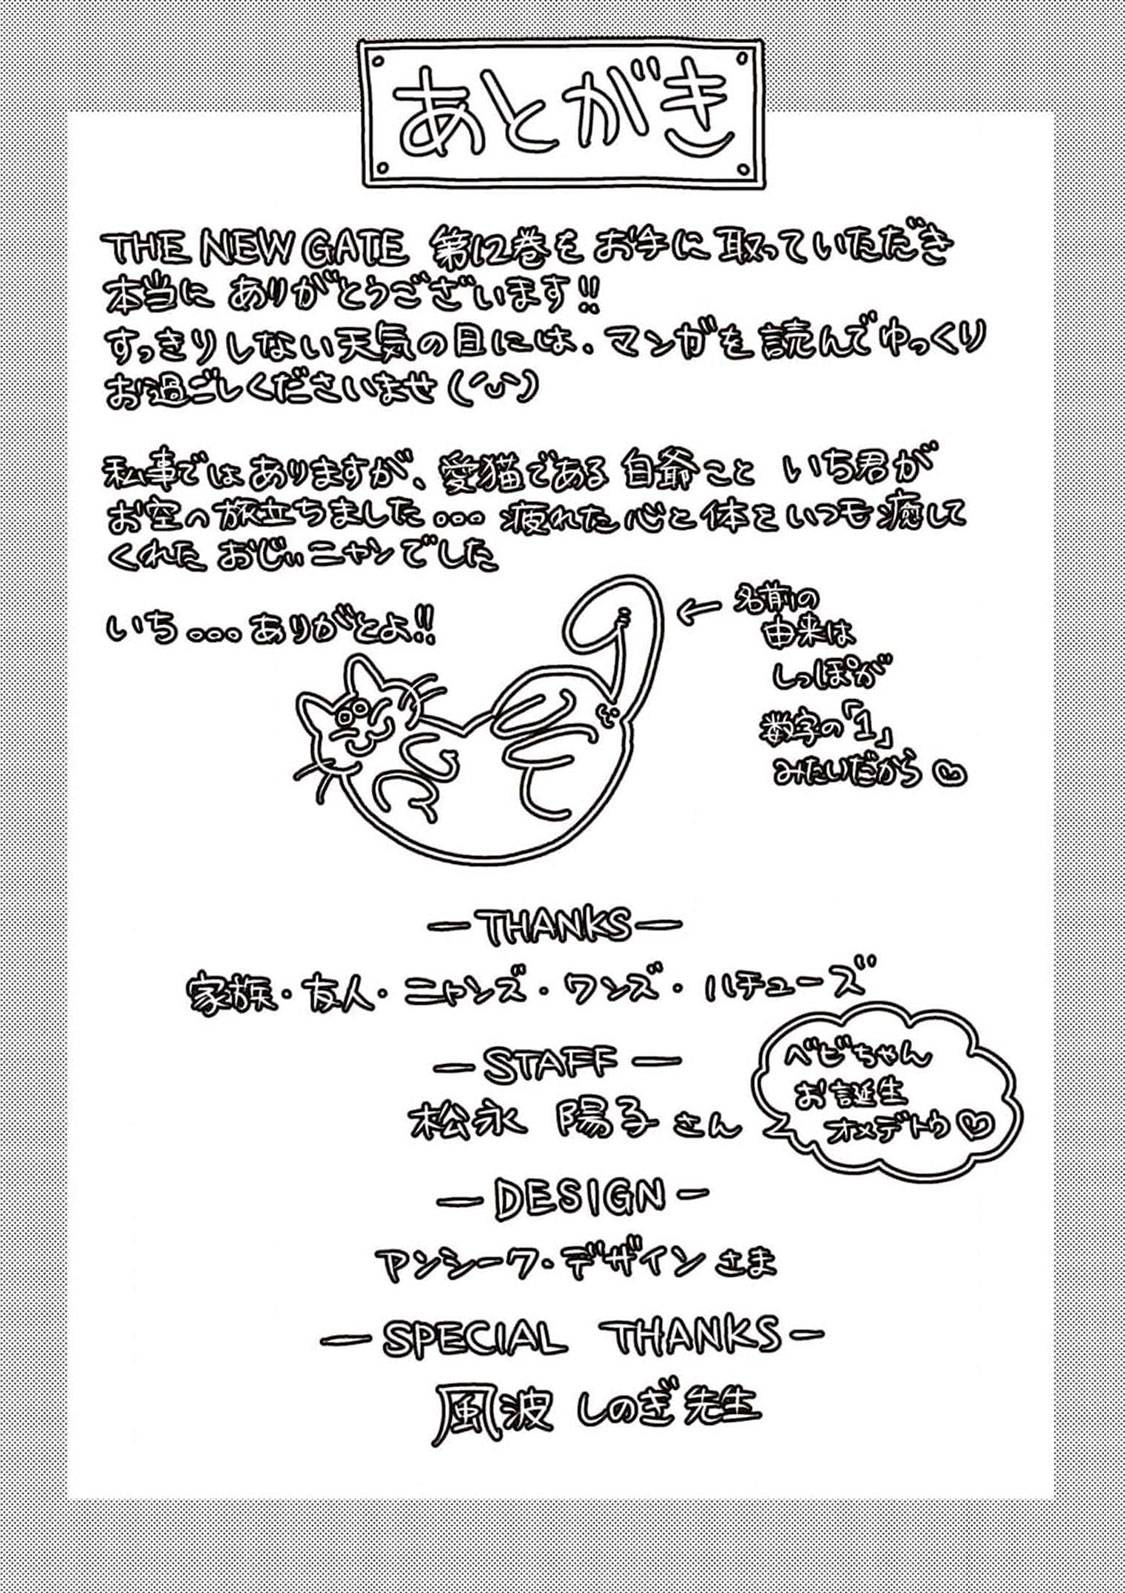 あとがき
THE NEW GATE 第12巻を お手に取っていただき
本当に ありがとうございます!!
すっきりしない天気の日には、マンガを読んでゆっくり
お過ごしくださいませ('ᴗ')
私事ではありますが、愛猫である 白爺こと いち君が
お空へ旅立ちました... 疲れた心と体をいつも癒して
くれた おじぃニャンでした
いち...ありがとよ!!
← 名前の
由来は
しっぽが
数字の「1」
みたいだから♡
—THANKS—
家族・友人・ニャンズ・ワンズ・ハチューズ
—STAFF—
松永 陽子さん
ベビちゃん
お誕生
オメデトウ♡
—DESIGN—
アンシーク・デザインさま
—SPECIAL THANKS—
風波しのぎ先生